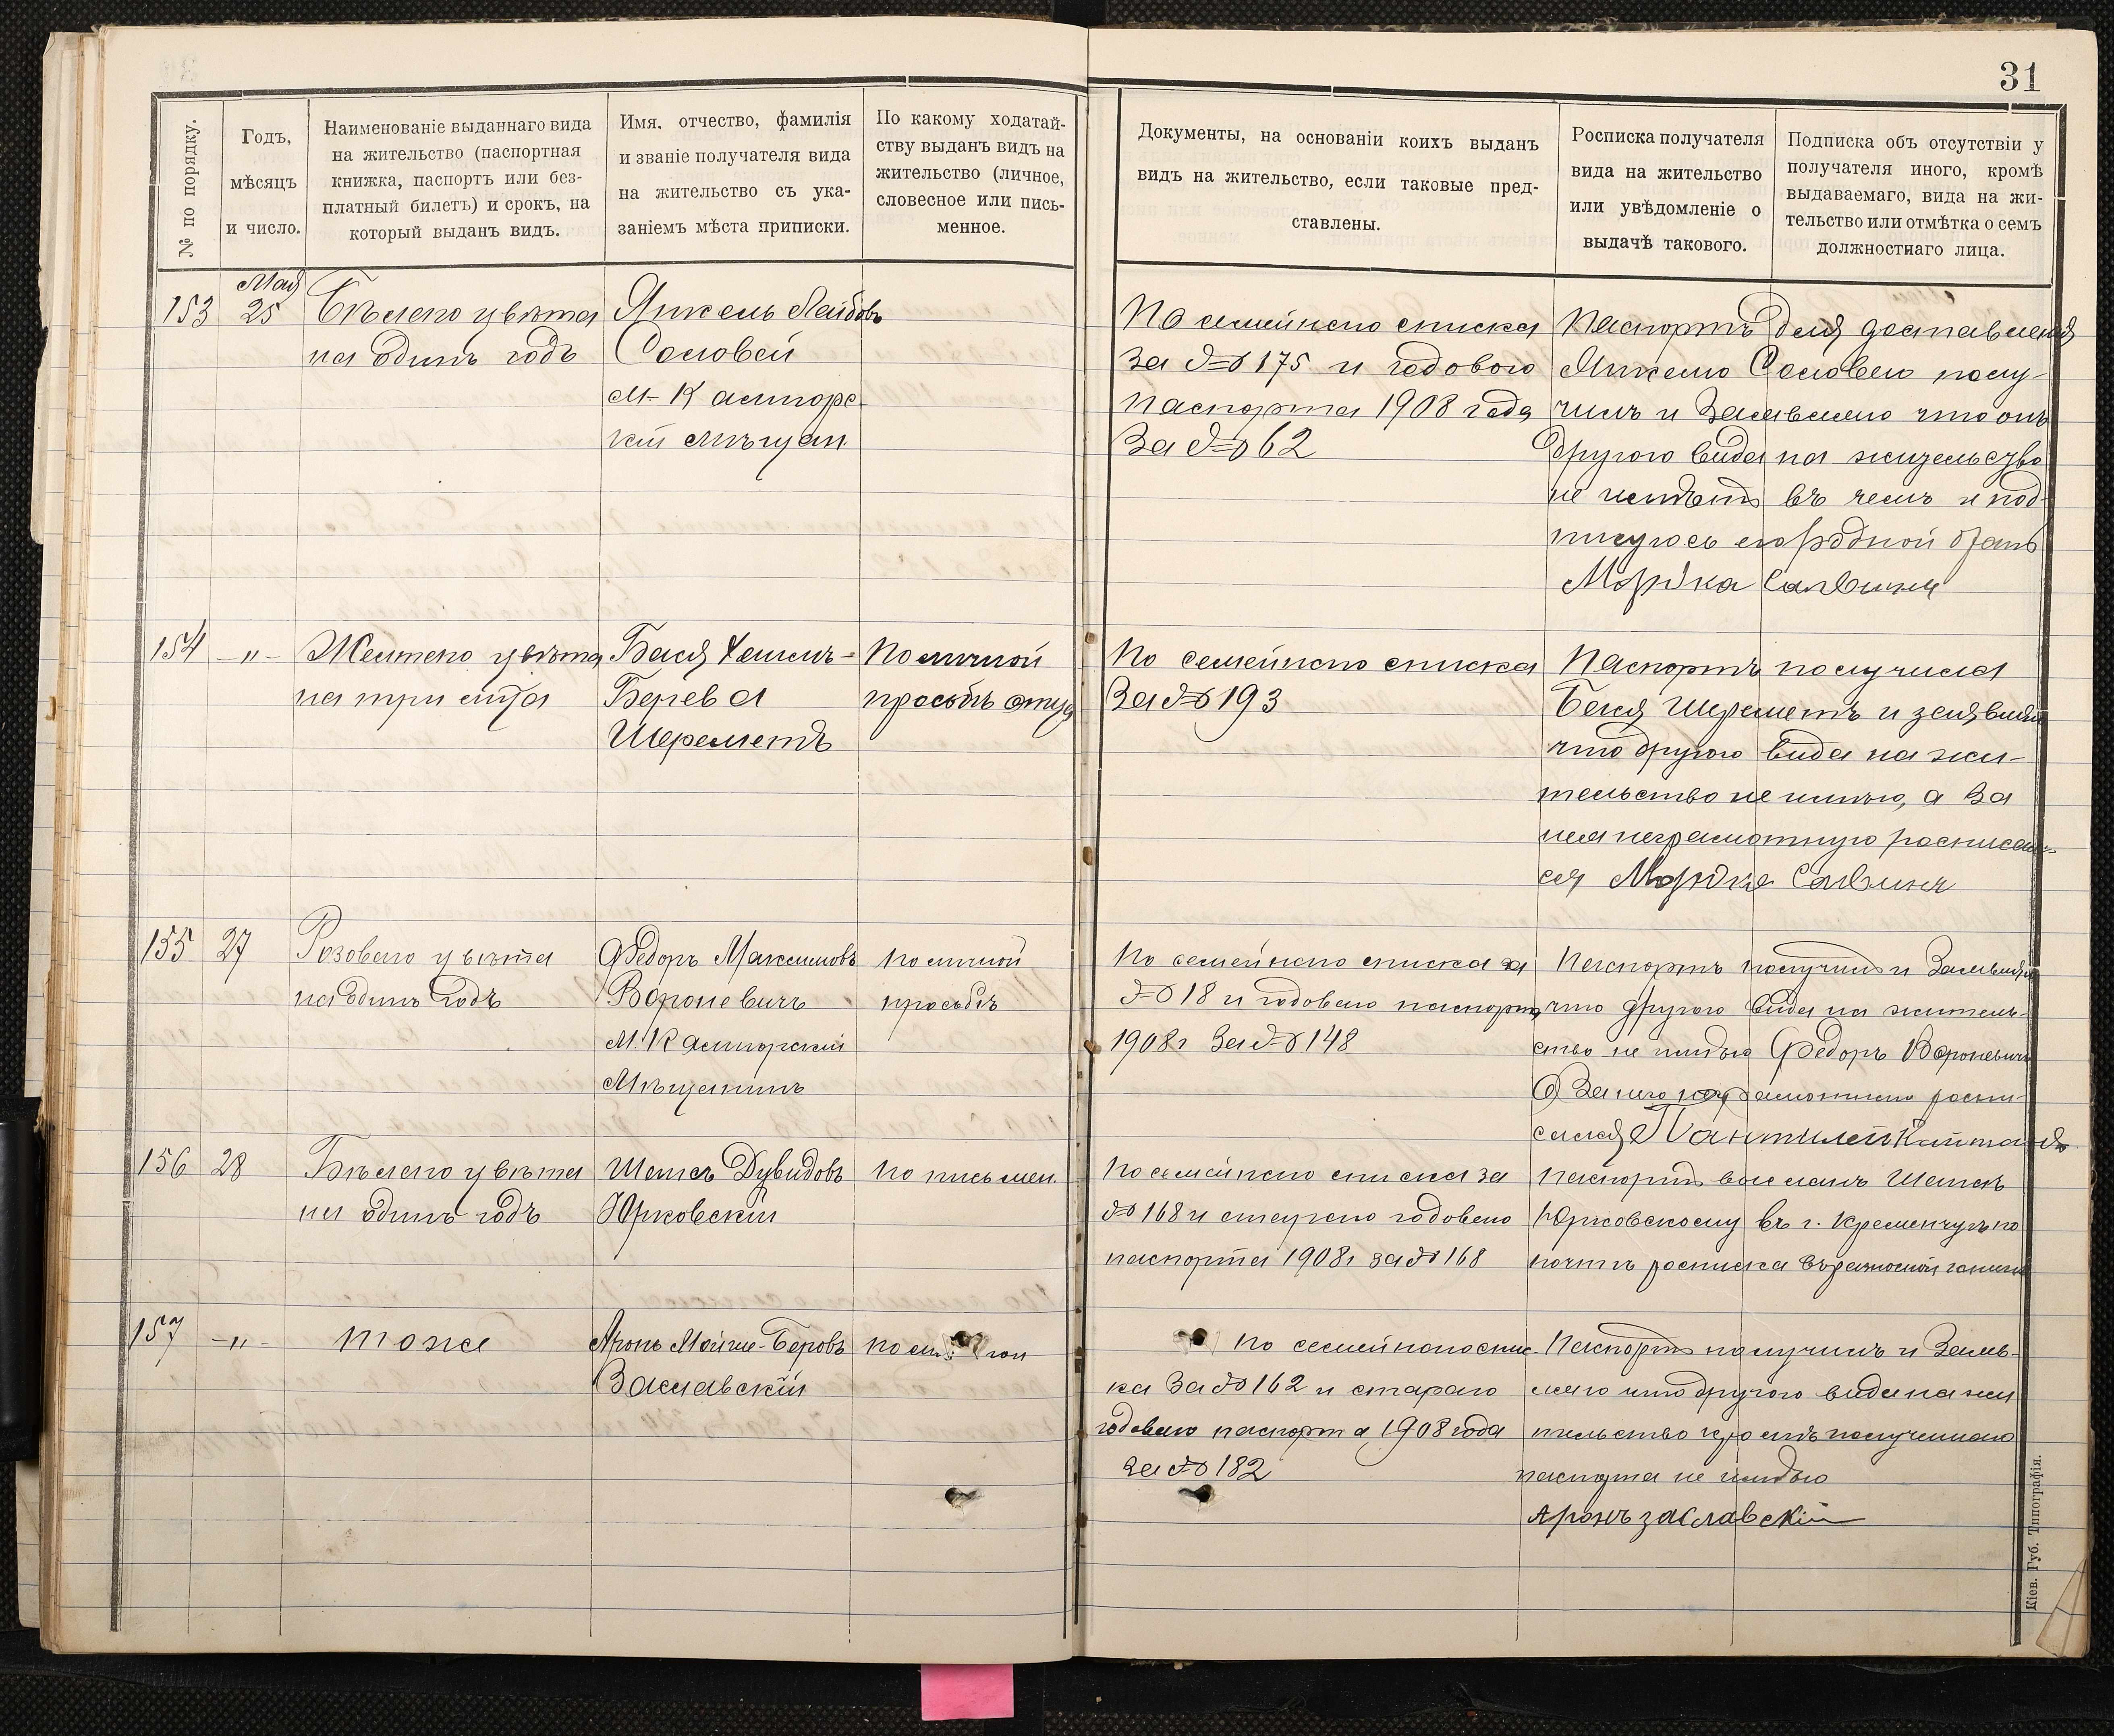 31
№ по порядку.
Годъ,
мѣсяцъ
и число.
Наименованіе выданнаго вида
на жительство (паспортная
книжка, паспортъ или без-
платный билетъ) и срокъ, на
который выданъ видъ.
Имя, отчество, фамилія
и званіе получателя вида
на жительство съ ука-
заніемъ мѣста приписки.
По какому ходатай-
ству выданъ видъ на
жительство (личное,
словесное или пись-
менное.
Документы, на основаніи коихъ выданъ
видъ на жительство, если таковые пред-
ставлены.
Росписка получателя
вида на жительство
или увѣдомленіе о
выдачѣ такового.
Подписка объ отсутствіи у
получателя иного, кромѣ
выдаваемаго, вида на жи-
тельство или отмѣтка о семъ
должностнаго лица.
Мая
153
25
Бѣлаго цвѣта
на одинъ годъ
Янкель Лейбовъ
Соловей
М-Касторс
кій мѣщан
По семейнаго списка
За № 175 и годового
паспорта 1908 года
За № 62
Паспортъ для доставленія
Янкелю Соловею полу-
чилъ и Заявляю что онъ
другого вида на жительство
не имѣетъ въ чемъ и под-
писуюсь его родной братъ
Мордка
154
-"-
Желтаго цвѣта
на три лѣта
Бася Хаимъ-
Берева
Шереметъ
По личной
просьбѣ отца
По семейнаго списка
За № 193
Паспортъ получила
Бася Шереметъ и заявила
что другого вида на жи-
тельство не имѣю, а За
нея неграмотную росписал-
ся Мордка
155
27
Розоваго цвѣта
на одинъ годъ
Федоръ Максимовъ
Вороневичъ
М. Касторскій
Мѣщанинъ
По личной
просьбѣ
По семейнаго списка за
№ 18 и годоваго паспорта
1908 г За № 148
Паспортъ получилъ и Заявляю
что другого вида на житель-
ство не имѣю Федоръ Вороневичъ
а За него неграмотнаго роспи-
сался
156
28
Бѣлаго цвѣта
на одинъ годъ
Шамсъ Дувидовъ
Юрковскій
По письмен.
По семейнаго списка за
№ 168 и стараго годоваго
паспорта 1908 г за № 168
Паспортъ высланъ
Юрковскому въ г. Кременчугъ по
почтѣ росписка въ разносной книги
157
-"-
тоже
Аронъ Мойше-Беровъ
Заславскій
По семейнаго спис-
ка За № 162 и стараго
годоваго паспорта 1908 года
За № 182
Паспортъ получилъ и Заяв-
ляю что другого вида на жи
тельство кромѣ полученнаго
паспорта не имѣю
Аронъ заславскій
Кіев. Губ. Типографія.